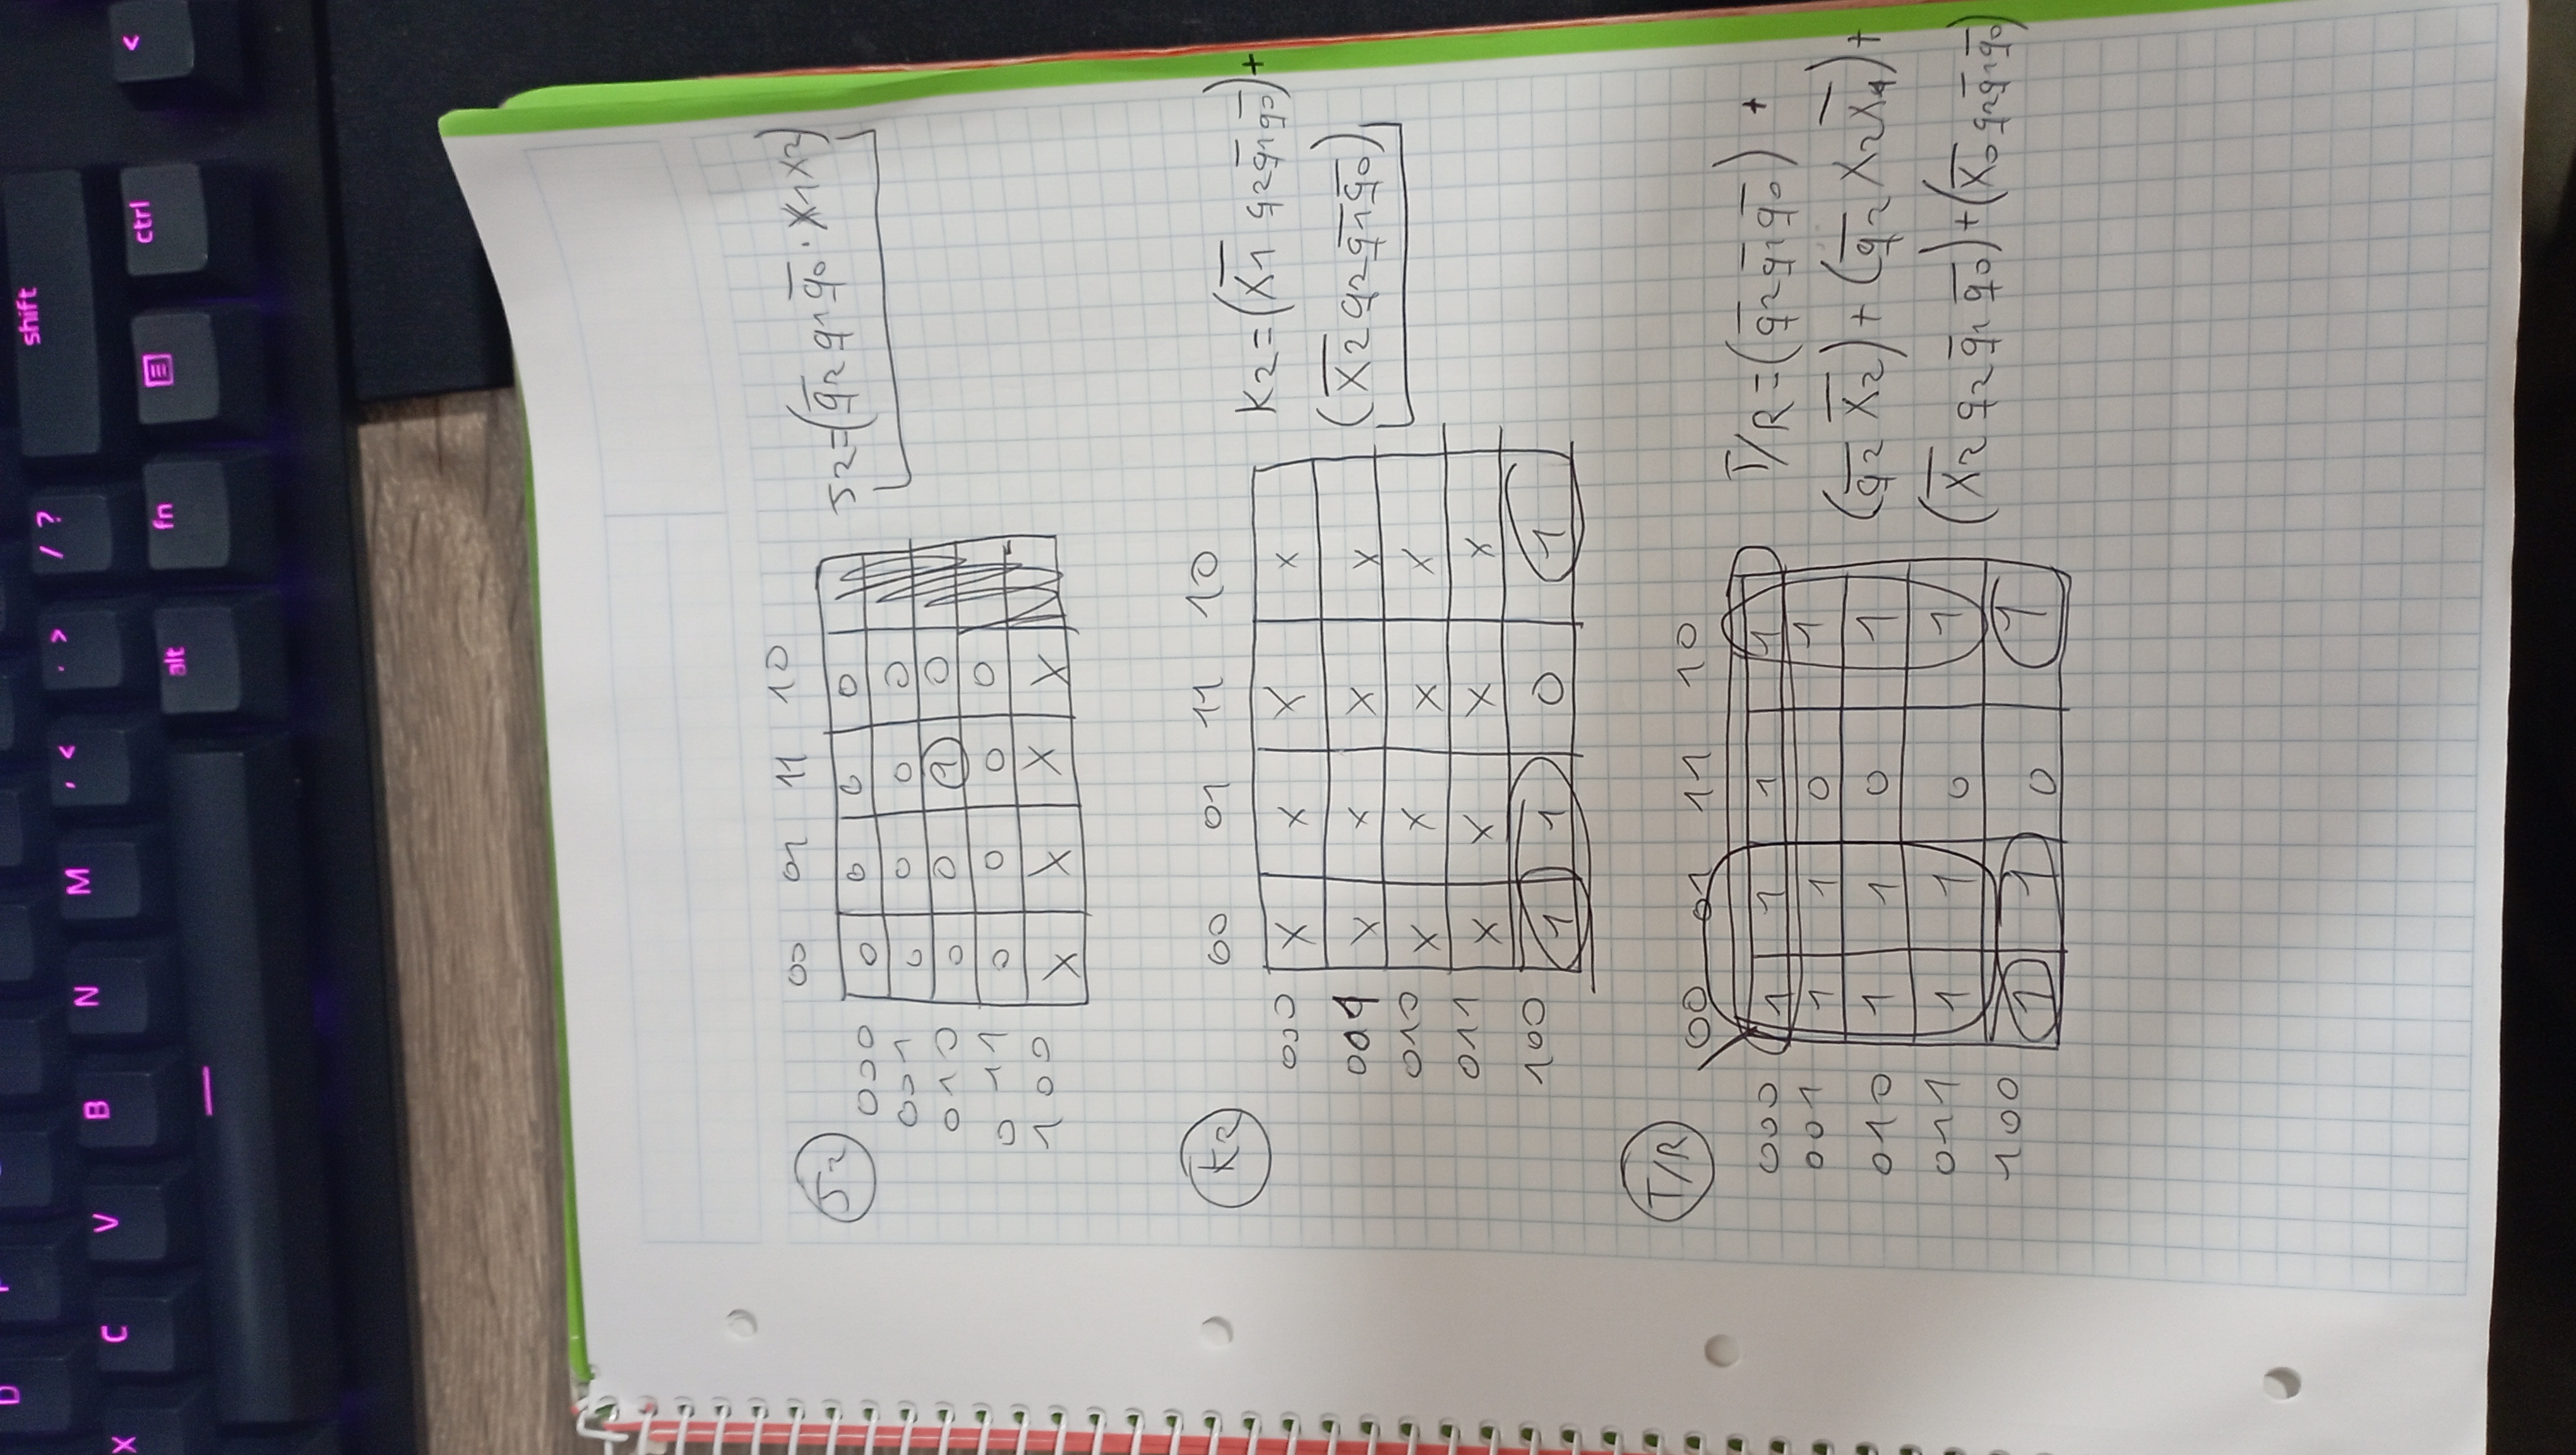 D
shift
X C V B N M , < . > / ?
alt fn ctrl <
J2
00 01 11 10
000 0 0 0 0
001 0 0 0 0
010 0 0 1 0
011 0 0 0 0
100 X X X X
J2=(q̅2 q1 q̅0 · X1X2)
K2
00 01 11 10
000 X X X X
001 X X X X
010 X X X X
011 X X X X
100 1 1 0 1
K2=(X̅1 q2q̅1q̅0)+
(X̅2 q2q̅1q̅0)
T/R
00 01 11 10
000 1 1 1 1
001 1 1 0 1
010 1 1 0 1
011 1 1 0 1
100 1 1 0 1
T/R=(q̅2q̅1q̅0) +
(q̅2 X̅2)+(q̅2 X2X̅1)+
(X̅2 q2 q̅1 q̅0)+(X̅0 q2q̅1q̅0)